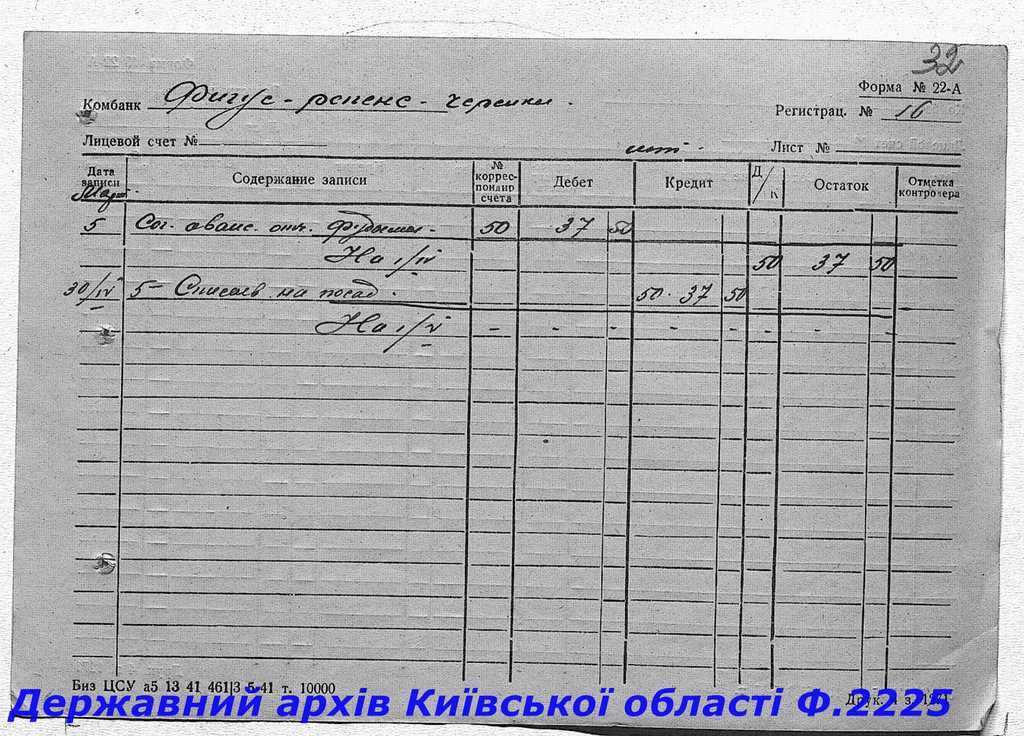 32
Форма № 22-А
Комбанк Фигус-репенс-черенки.
Регистрац. № 16
Лицевой счет №
шт.
Лист №
Дата записи
Содержание записи
№ коррес-пондир счета
Дебет
Кредит
Д/К
Остаток
Отметка контролера
Март
5 Сог. аванс. отч. 50 37 50
На 1/IV 50 37 50
30/IV 5- на посад. 50. 37 50
На 1/V - - - - - - - -
Биз ЦСУ а5 13 41 461|3 5-41 т. 10000
Друк.
Державний архів Київської області Ф.2225